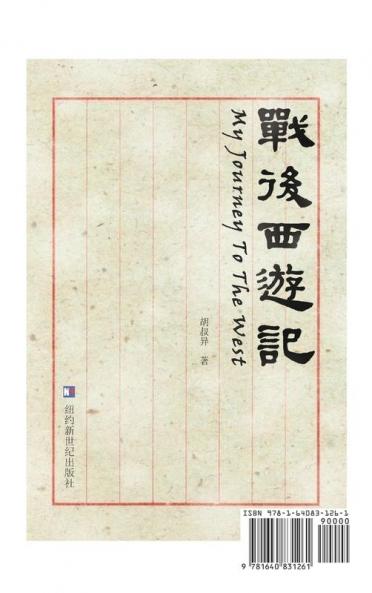 戰後西遊記
My Journey To The West
胡叔异 著
纽约新世纪出版社
ISBN 978-1-64083-126-1
90000
9 781640 831261